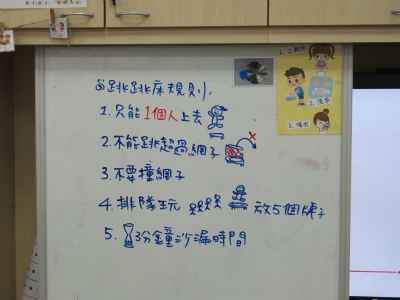 跳跳床規則:
1. 只能1個人上去
2. 不能跳超過網子
3. 不要撞網子
4. 排隊玩 放5個牌子
5. 3分鐘沙漏時間